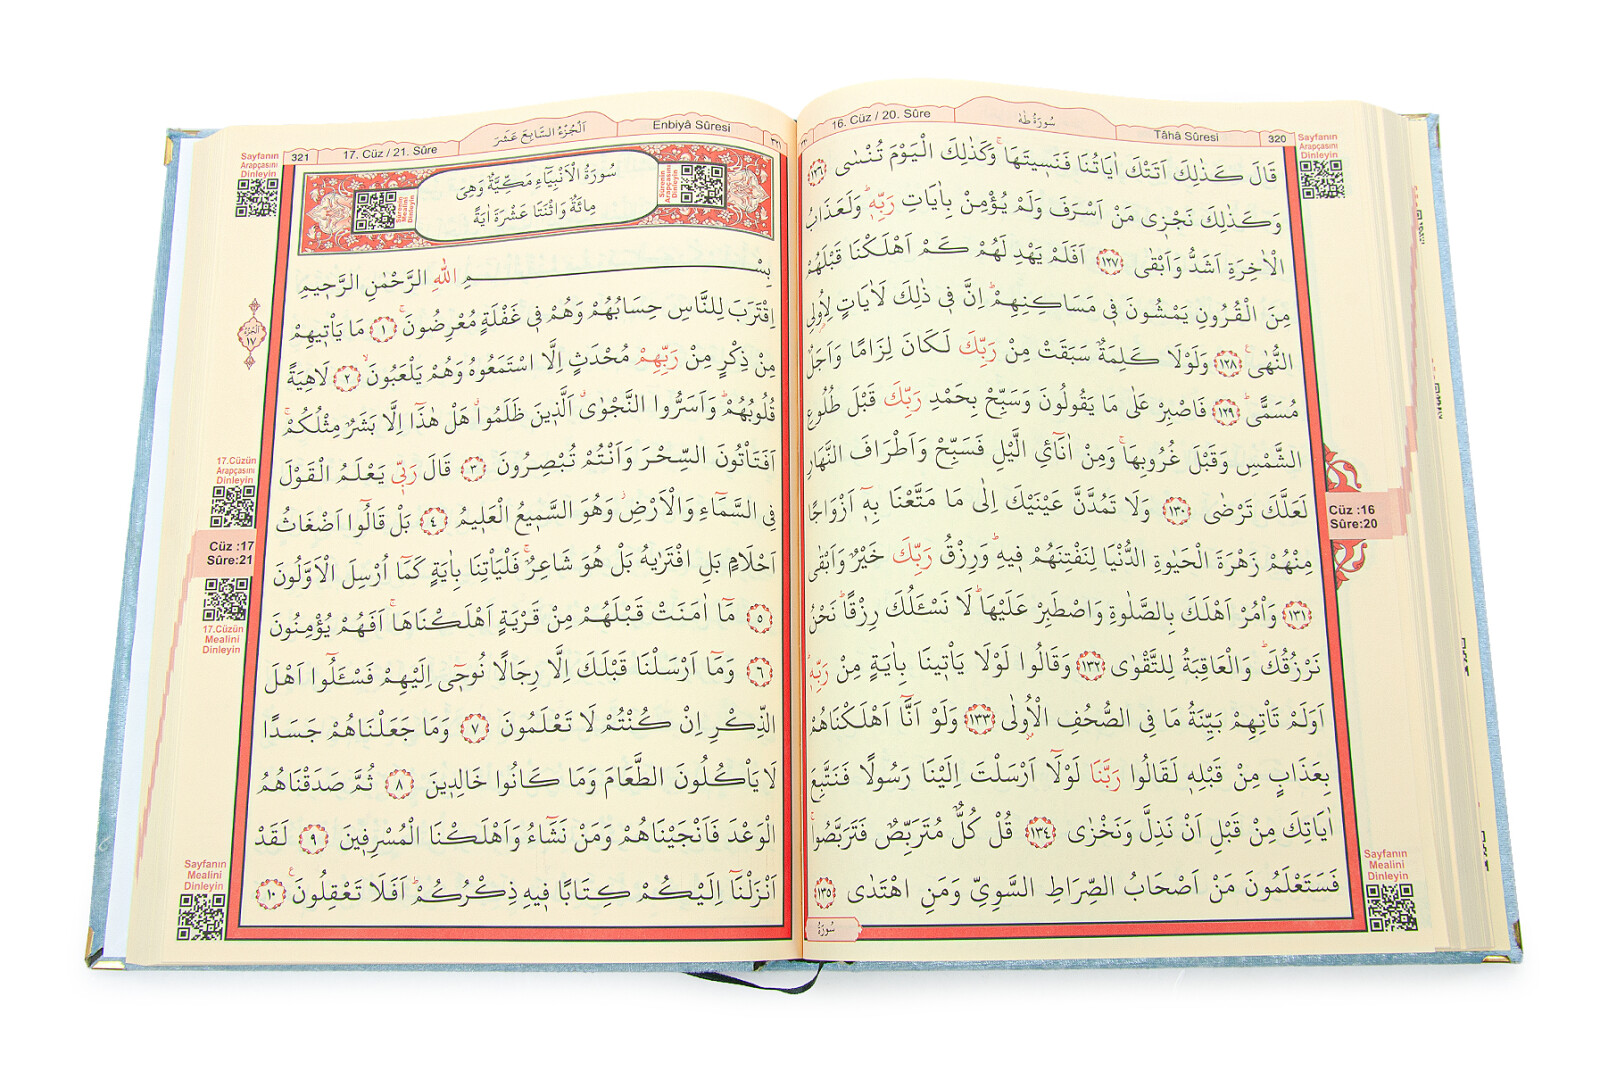 16. Cüz / 20. Sûre
سُورَةُ طٰهٰ
Tâhâ Sûresi
320
Sayfanın
Arapçasını
Dinleyin
قَالَ كَذٰلِكَ اَتَتْكَ اٰيَاتُنَا فَنَسٖيتَهَاۚ وَكَذٰلِكَ الْيَوْمَ تُنْسٰى ﴿١٢٦﴾
وَكَذٰلِكَ نَجْزٖى مَنْ اَسْرَفَ وَلَمْ يُؤْمِنْ بِاٰيَاتِ رَبِّهٖؕ وَلَعَذَابُ
الْاٰخِرَةِ اَشَدُّ وَاَبْقٰى ﴿١٢٧﴾ اَفَلَمْ يَهْدِ لَهُمْ كَمْ اَهْلَكْنَا قَبْلَهُمْ
مِنَ الْقُرُونِ يَمْشُونَ فٖى مَسَاكِنِهِمْؕ اِنَّ فٖى ذٰلِكَ لَاٰيَاتٍ لِاُولِى
النُّهٰىۚ ﴿١٢٨﴾ وَلَوْلَا كَلِمَةٌ سَبَقَتْ مِنْ رَبِّكَ لَكَانَ لِزَامًا وَاَجَلٌ
مُسَمًّىؕ ﴿١٢٩﴾ فَاصْبِرْ عَلٰى مَا يَقُولُونَ وَسَبِّحْ بِحَمْدِ رَبِّكَ قَبْلَ طُلُوعِ
الشَّمْسِ وَقَبْلَ غُرُوبِهَاۚ وَمِنْ اٰنَآئِ الَّيْلِ فَسَبِّحْ وَاَطْرَافَ النَّهَارِ
لَعَلَّكَ تَرْضٰى ﴿١٣٠﴾ وَلَا تَمُدَّنَّ عَيْنَيْكَ اِلٰى مَا مَتَّعْنَا بِهٖٓ اَزْوَاجًا
مِنْهُمْ زَهْرَةَ الْحَيٰوةِ الدُّنْيَا لِنَفْتِنَهُمْ فٖيهِؕ وَرِزْقُ رَبِّكَ خَيْرٌ وَاَبْقٰى
﴿١٣١﴾ وَأْمُرْ اَهْلَكَ بِالصَّلٰوةِ وَاصْطَبِرْ عَلَيْهَاؕ لَا نَسْـَٔلُكَ رِزْقًاؕ نَحْنُ
نَرْزُقُكَؕ وَالْعَاقِبَةُ لِلتَّقْوٰى ﴿١٣٢﴾ وَقَالُوا لَوْلَا يَأْتٖينَا بِاٰيَةٍ مِنْ رَبِّهٖؕ
اَوَلَمْ تَأْتِهِمْ بَيِّنَةُ مَا فِى الصُّحُفِ الْاُولٰى ﴿١٣٣﴾ وَلَوْ اَنَّٓا اَهْلَكْنَاهُمْ
بِعَذَابٍ مِنْ قَبْلِهٖ لَقَالُوا رَبَّنَا لَوْلَٓا اَرْسَلْتَ اِلَيْنَا رَسُولًا فَنَتَّبِعَ
اٰيَاتِكَ مِنْ قَبْلِ اَنْ نَذِلَّ وَنَخْزٰى ﴿١٣٤﴾ قُلْ كُلٌّ مُتَرَبِّصٌ فَتَرَبَّصُواۚ
فَسَتَعْلَمُونَ مَنْ اَصْحَابُ الصِّرَاطِ السَّوِىِّ وَمَنِ اهْتَدٰى ﴿١٣٥﴾
Cüz :16
Sûre:20
Sayfanın
Mealini
Dinleyin
سُورَةُ
321
17. Cüz / 21. Sûre
اَلْجُزْءُ السَّابِعَ عَشَرَ
Enbiyâ Sûresi
Sayfanın
Arapçasını
Dinleyin
Sûrenin
Arapçasını
Dinleyin
سُورَةُ الْاَنْبِيَٓاءِ مَكِّيَّةٌ وَهِىَ
مِائَةٌ وَاثْنَتَا عَشْرَةَ اٰيَةً
Sûrenin
Mealini
Dinleyin
بِسْمِ اللّٰهِ الرَّحْمٰنِ الرَّحٖيمِ
اِقْتَرَبَ لِلنَّاسِ حِسَابُهُمْ وَهُمْ فٖى غَفْلَةٍ مُعْرِضُونَۚ ﴿١﴾ مَا يَأْتٖيهِمْ
مِنْ ذِكْرٍ مِنْ رَبِّهِمْ مُحْدَثٍ اِلَّا اسْتَمَعُوهُ وَهُمْ يَلْعَبُونَۙ ﴿٢﴾ لَاهِيَةً
قُلُوبُهُمْؕ وَاَسَرُّوا النَّجْوٰىۗ اَلَّذٖينَ ظَلَمُواۗ هَلْ هٰذَٓا اِلَّا بَشَرٌ مِثْلُكُمْۚ
اَفَتَأْتُونَ السِّحْرَ وَاَنْتُمْ تُبْصِرُونَ ﴿٣﴾ قَالَ رَبّٖى يَعْلَمُ الْقَوْلَ
فِى السَّمَٓاءِ وَالْاَرْضِؗ وَهُوَ السَّمٖيعُ الْعَلٖيمُ ﴿٤﴾ بَلْ قَالُٓوا اَضْغَاثُ
اَحْلَامٍ بَلِ افْتَرٰيهُ بَلْ هُوَ شَاعِرٌۚ فَلْيَأْتِنَا بِاٰيَةٍ كَمَٓا اُرْسِلَ الْاَوَّلُونَ
﴿٥﴾ مَٓا اٰمَنَتْ قَبْلَهُمْ مِنْ قَرْيَةٍ اَهْلَكْنَاهَاۚ اَفَهُمْ يُؤْمِنُونَ
﴿٦﴾ وَمَٓا اَرْسَلْنَا قَبْلَكَ اِلَّا رِجَالًا نُوحٖٓى اِلَيْهِمْ فَسْـَٔلُٓوا اَهْلَ
الذِّكْرِ اِنْ كُنْتُمْ لَا تَعْلَمُونَ ﴿٧﴾ وَمَا جَعَلْنَاهُمْ جَسَدًا
لَا يَأْكُلُونَ الطَّعَامَ وَمَا كَانُوا خَالِدٖينَ ﴿٨﴾ ثُمَّ صَدَقْنَاهُمُ
الْوَعْدَ فَاَنْجَيْنَاهُمْ وَمَنْ نَشَٓاءُ وَاَهْلَكْنَا الْمُسْرِفٖينَ ﴿٩﴾ لَقَدْ
اَنْزَلْنَٓا اِلَيْكُمْ كِتَابًا فٖيهِ ذِكْرُكُمْؕ اَفَلَا تَعْقِلُونَۚ ﴿١٠﴾
اَلْجُزْءُ
١٧
17.Cüzün
Arapçasını
Dinleyin
Cüz :17
Sûre:21
17.Cüzün
Mealini
Dinleyin
Sayfanın
Mealini
Dinleyin